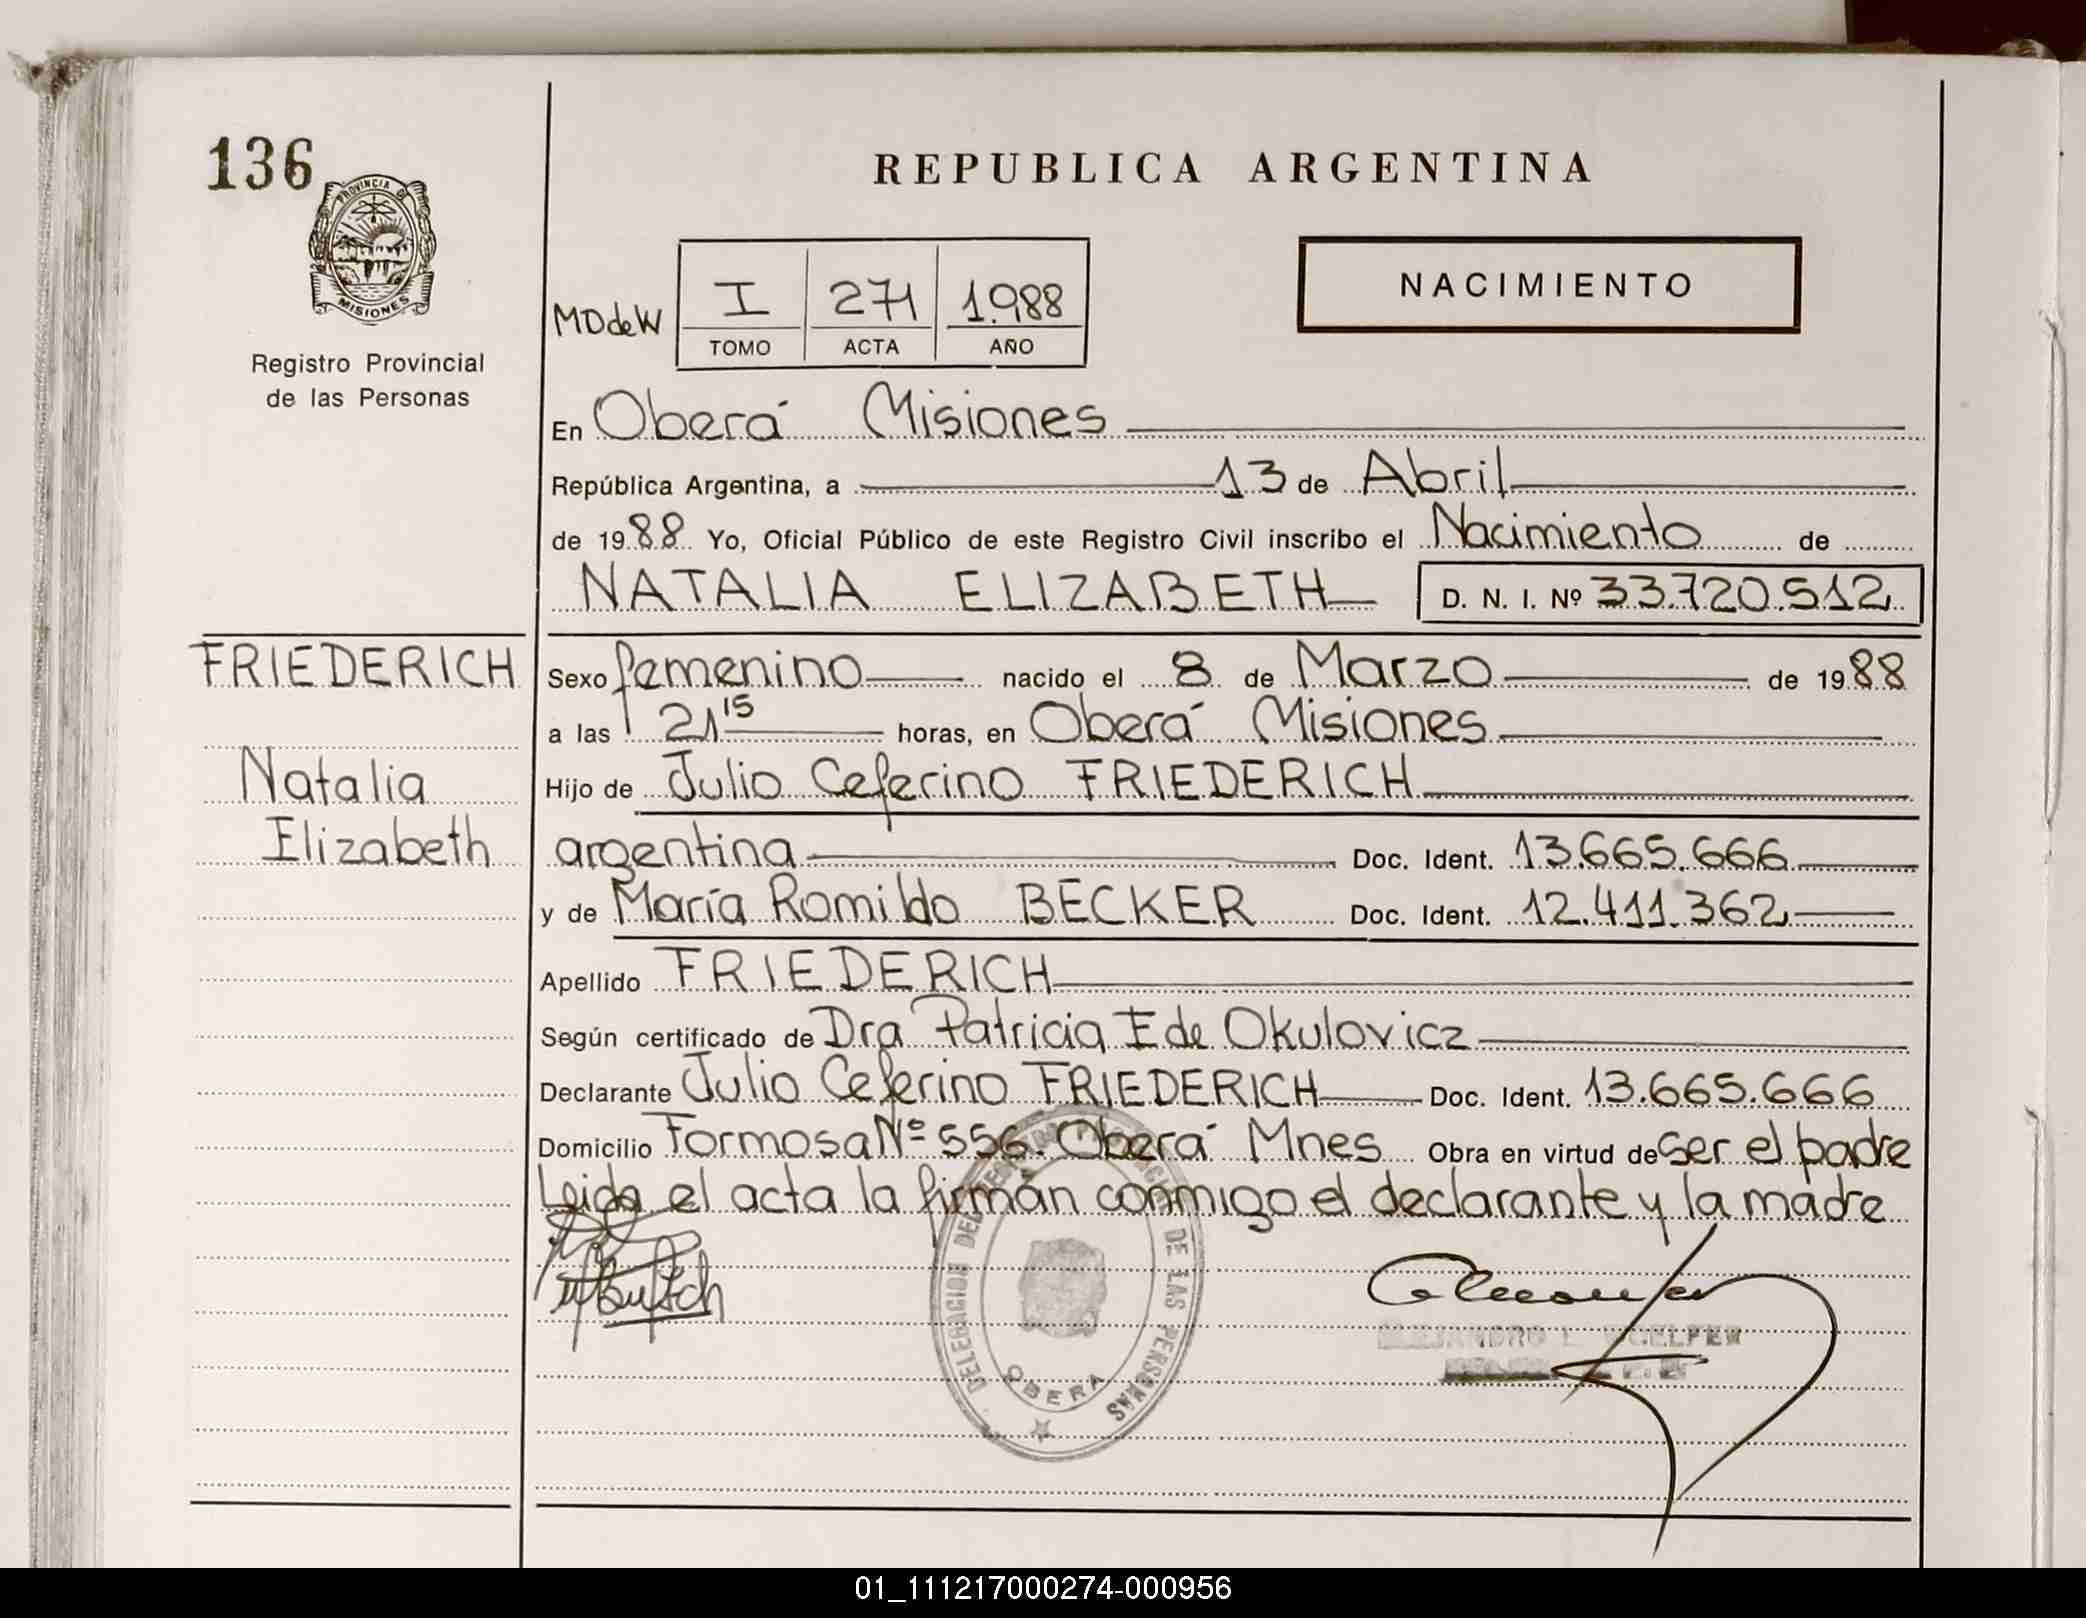 136
PROVINCIA DE
MISIONES
Registro Provincial
de las Personas
REPUBLICA ARGENTINA
MDdeW
I 271 1.988
TOMO ACTA AÑO
NACIMIENTO
En Oberá Misiones
República Argentina, a 13 de Abril
de 1988 Yo, Oficial Público de este Registro Civil inscribo el Nacimiento de
NATALIA ELIZABETH D. N. I. Nº 33.720.512
FRIEDERICH
Natalia
Elizabeth
Sexo femenino nacido el 8 de Marzo de 1988
a las 21 15 horas, en Oberá Misiones
Hijo de Julio Ceferino FRIEDERICH
argentina Doc. Ident. 13.665.666
y de María Romilda BECKER Doc. Ident. 12.411.362
Apellido FRIEDERICH
Según certificado de Dra Patricia E de Okulovicz
Declarante Julio Ceferino FRIEDERICH Doc. Ident. 13.665.666
Domicilio Formosa Nº 556. Oberá Mnes Obra en virtud de ser el padre
Leida el acta la firman conmigo el declarante y la madre
DELEGACION DEL DE LAS PERSONAS
OBERA
ALEJANDRO L. WOELFER
01_111217000274-000956